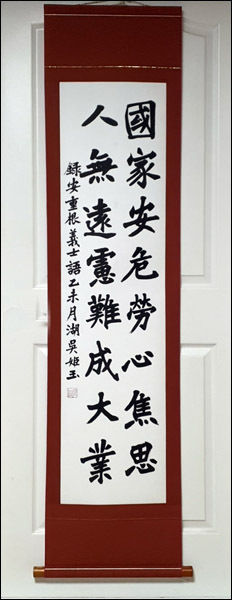 國家安危勞心焦思
人無遠慮難成大業
錄安重根義士語乙未月湖吳姬玉